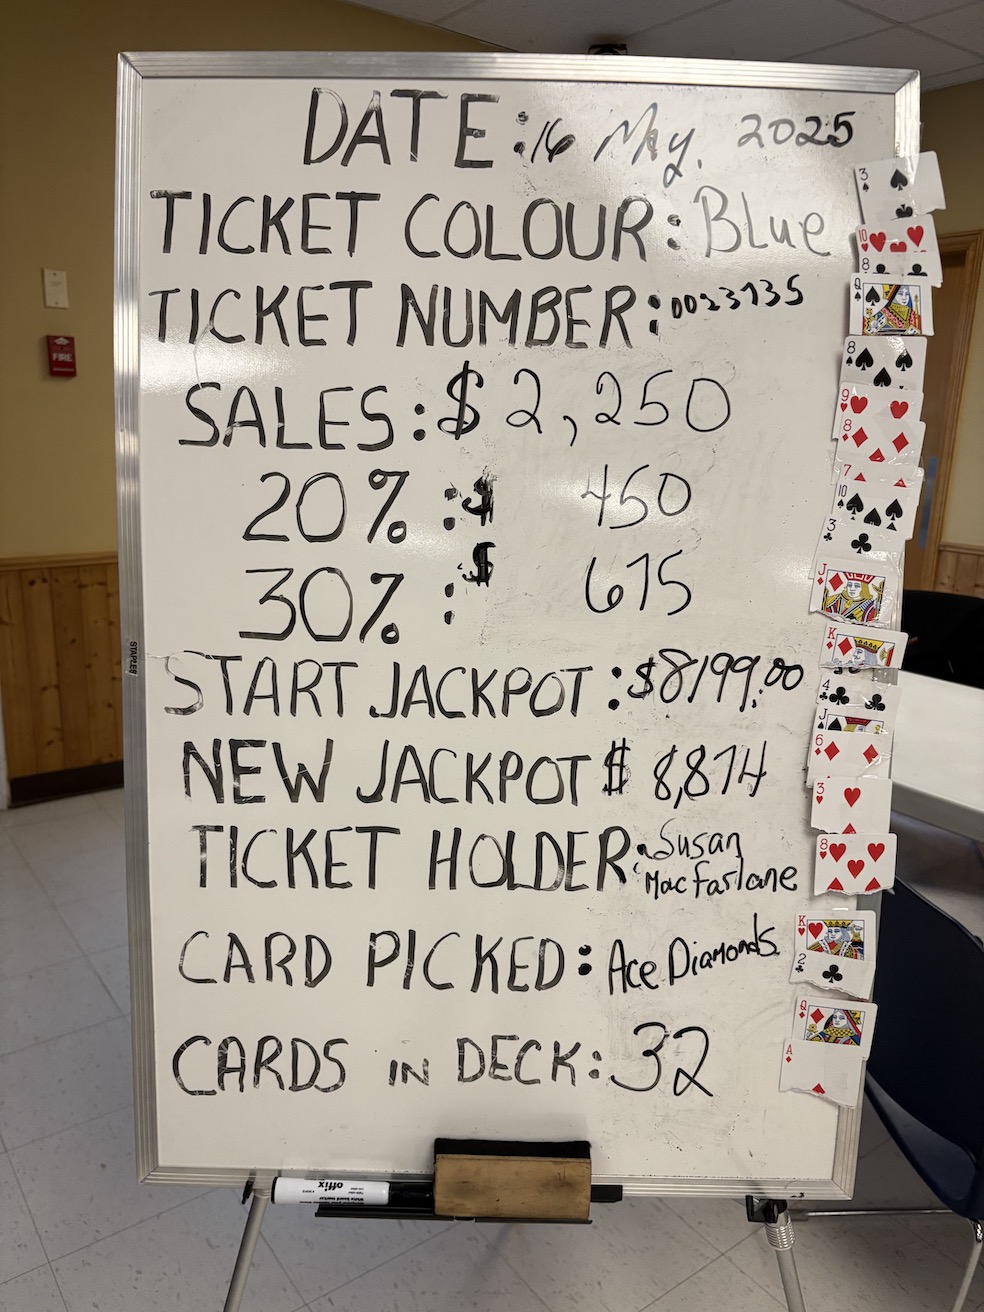 DATE: 16 May. 2025
TICKET COLOUR: Blue
TICKET NUMBER: 0023735
SALES: $ 2,250
20% : $ 450
30% : $ 675
START JACKPOT: $8199.00
NEW JACKPOT $ 8,874
TICKET HOLDER: Susan
MacFarlane
CARD PICKED: Ace Diamonds
CARDS IN DECK: 32
FIRE
STAPLES
offix
3
10
8
Q
8
9
8
7
10
3
J
K
4
J
6
3
8
K
2
Q
A